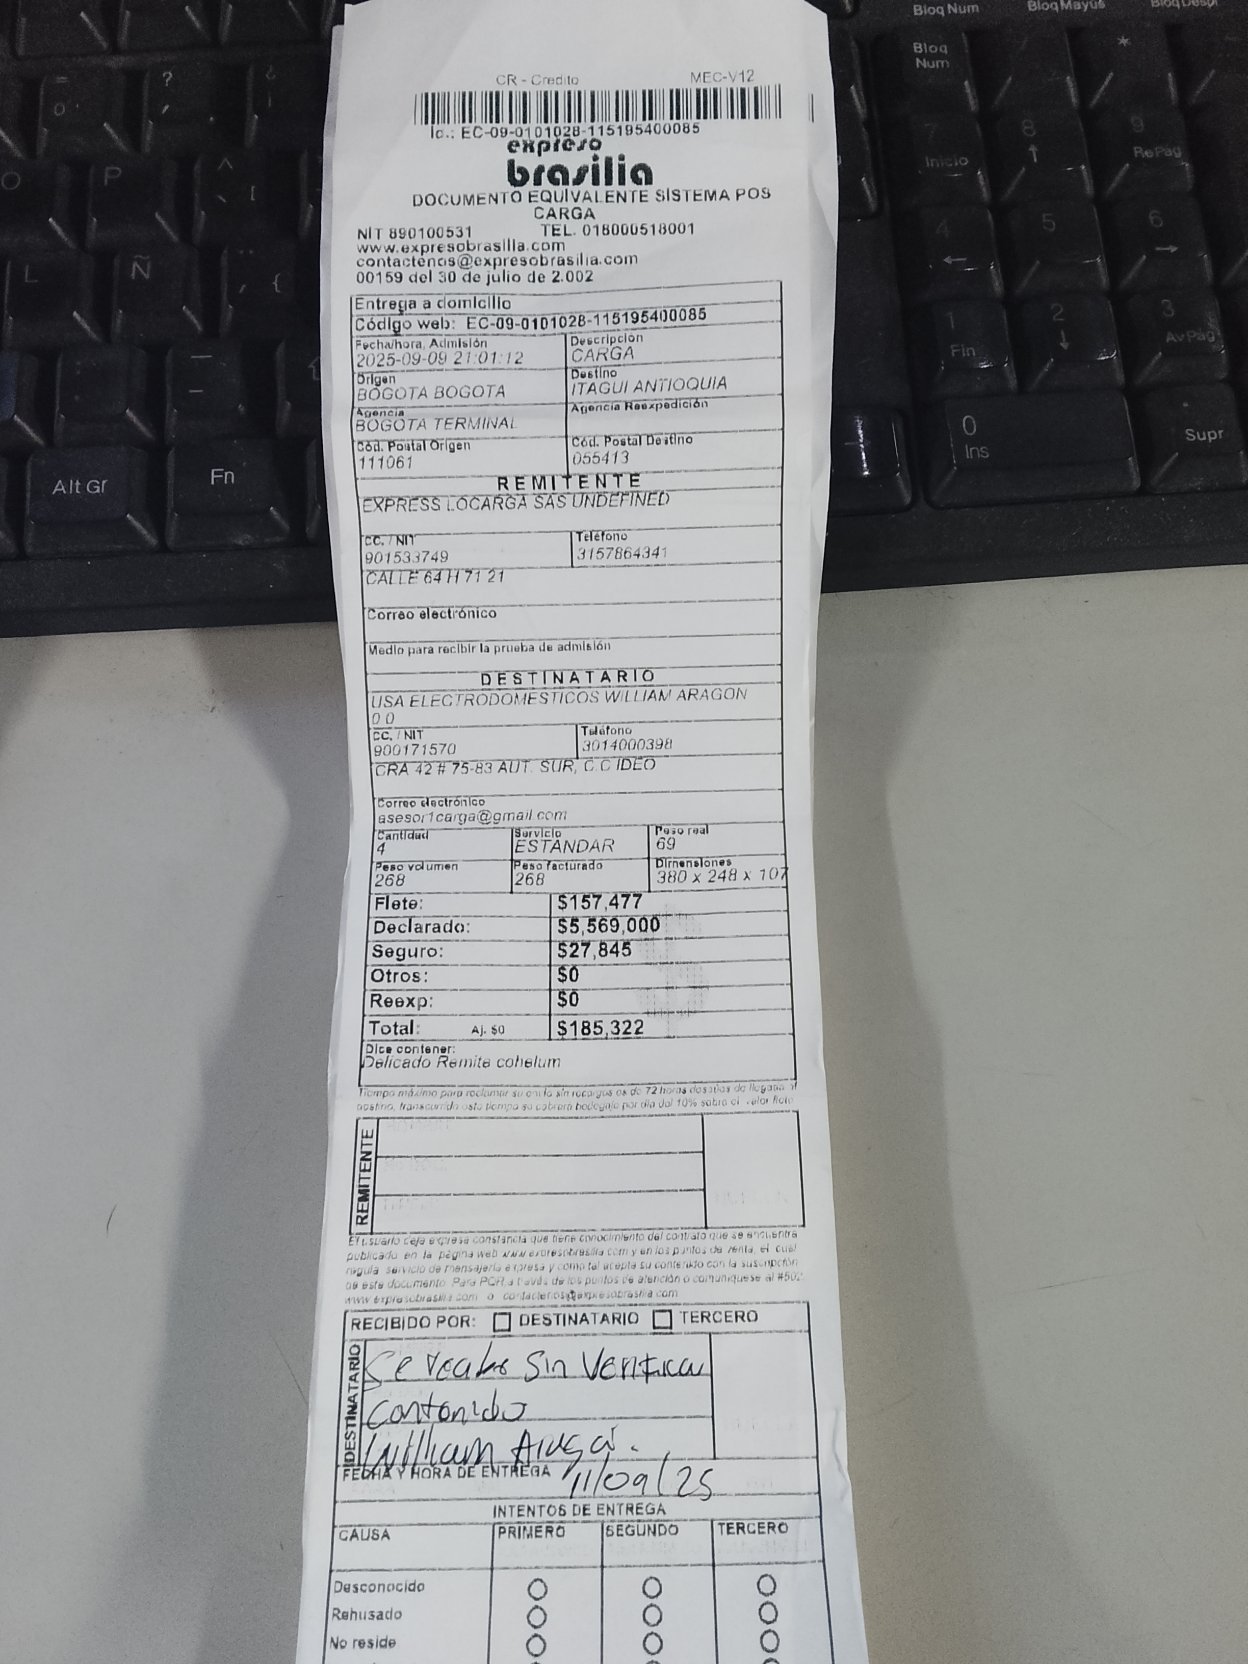 CR - Credito MEC-V12
Id.: EC-09-0101028-115195400085
expreso
brasilia
DOCUMENTO EQUIVALENTE SISTEMA POS
CARGA
NIT 890100531 TEL. 018000518001
www.expresobrasilia.com
contactenos@expresobrasilia.com
00159 del 30 de julio de 2.002
Entrega a domicilio
Código web: EC-09-0101028-115195400085
Fecha/hora, Admisión Descripción
2025-09-09 21:01:12 CARGA
Origen Destino
BOGOTA BOGOTA ITAGUI ANTIOQUIA
Agencia Agencia Reexpedición
BOGOTA TERMINAL
Cód. Postal Origen Cód. Postal Destino
111061 055413
REMITENTE
EXPRESS LOCARGA SAS UNDEFINED
CC. / NIT Teléfono
901533749 3157864341
CALLE 64 H 71 21
Correo electrónico
Medio para recibir la prueba de admisión
DESTINATARIO
USA ELECTRODOMESTICOS WILLIAM ARAGON
0 0
CC. / NIT Teléfono
900171570 3014000398
CRA 42 # 75-83 AUT. SUR, C.C IDEO
Correo electrónico
asesor1carga@gmail.com
Cantidad Servicio Peso real
4 ESTANDAR 69
Peso volumen Peso facturado Dimensiones
268 268 380 x 248 x 107
Flete: $157,477
Declarado: $5,569,000
Seguro: $27,845
Otros: $0
Reexp: $0
Total: Aj. $0 $185,322
Dice contener:
Delicado Remite cohelum
Tiempo máximo para reclamar su envío sin recargos es de 72 horas después de llegada al
destino, transcurrido este tiempo se cobrará bodegaje por día del 10% sobre el valor flete
REMITENTE
El usuario deja expresa constancia que tiene conocimiento del contrato que se encuentra
publicado en la página web www.expresobrasilia.com y en los puntos de venta, el cual
regula servicio de mensajería expresa y como tal acepta su contenido con la suscripción
de este documento. Para PQR a través de los puntos de atención o comuníquese al #502
www.expresobrasilia.com o contactenos@expresobrasilia.com
RECIBIDO POR: DESTINATARIO TERCERO
DESTINATARIO
Se recibe Sin Verificar
Contenido
William Aragó.
FECHA Y HORA DE ENTREGA 11/09/25
INTENTOS DE ENTREGA
CAUSA PRIMERO SEGUNDO TERCERO
Desconocido
Rehusado
No reside
Bloq Num Bloq Mayús
Bloq
Num
*
7 8 9
Inicio ↑ RePág
4 5 6
← →
1 2 3
Fin ↓ AvPág
0
Ins
Supr
Alt Gr Fn
?
O P
L Ñ {